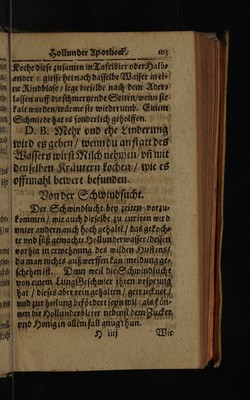 Hollunder Apotheck. 103
Koche diese zusamen in Tafelbier oder Halb-
ander: giesse hernach dasselbe Wasser in ei-
ne Rindblase / lege dieselbe nach dem Ader-
lassen auff die schmertzende Seiten / wenn sie
kalt worden / wärme sie wiederumb. Einem
Schmiede hat es sonderlich geholffen.
D. B. Mehr und ehe Linderung
wird es geben / wenn du an statt des
Wassers wirst Milch nehmen / uñ mit
denselben Kräutern kochen / wie es
offtmahl bewert befunden.
Von der Schwindsucht.
Der Schwindsucht bey zeiten vorzu-
kommen / wie auch dieselbe zu curiren wird
unter andern auch hoch gehalten / das gekoch-
te und süß gemachte Hollunderwasser / dessen
vorhin in erwehnung des wilden Hustens /
da man nichts außwerffen kan meldung ge-
schehen ist. Denn weil die Schwindsucht
von einem Lung Geschwier ihren ursprung
hat / dieses aber rein gehalten / getrucknet /
und zur heilung befördert seyn wil: als kön-
nen die Hollunderblüter nebenst dem Zucker
und Honig in allem fall anug thun.
H iiij Wie